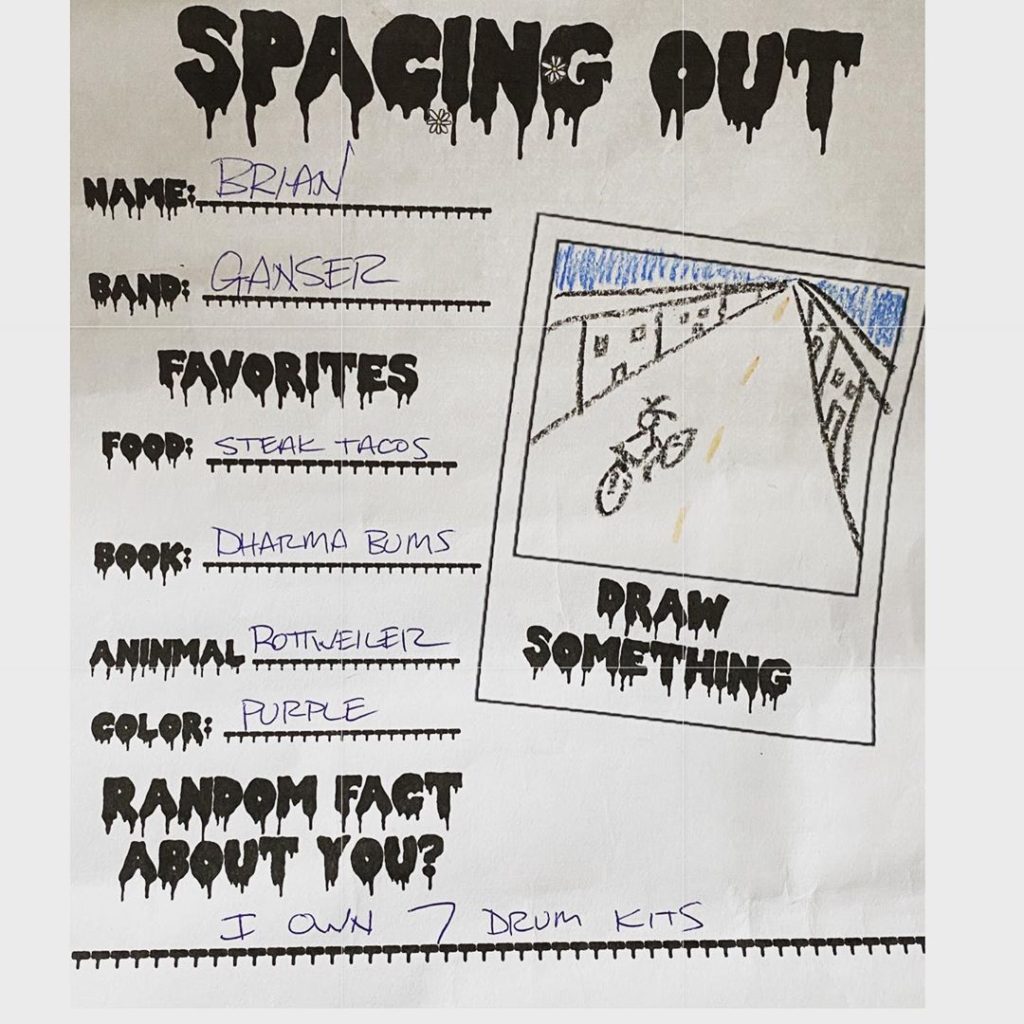 SPACING OUT
NAME: BRIAN
BAND: GANSER
FAVORITES
FOOD: STEAK TACOS
BOOK: DHARMA BUMS
ANINMAL ROTTWEILER
COLOR: PURPLE
DRAW
SOMETHING
RANDOM FACT
ABOUT YOU?
I OWN 7 DRUM KITS